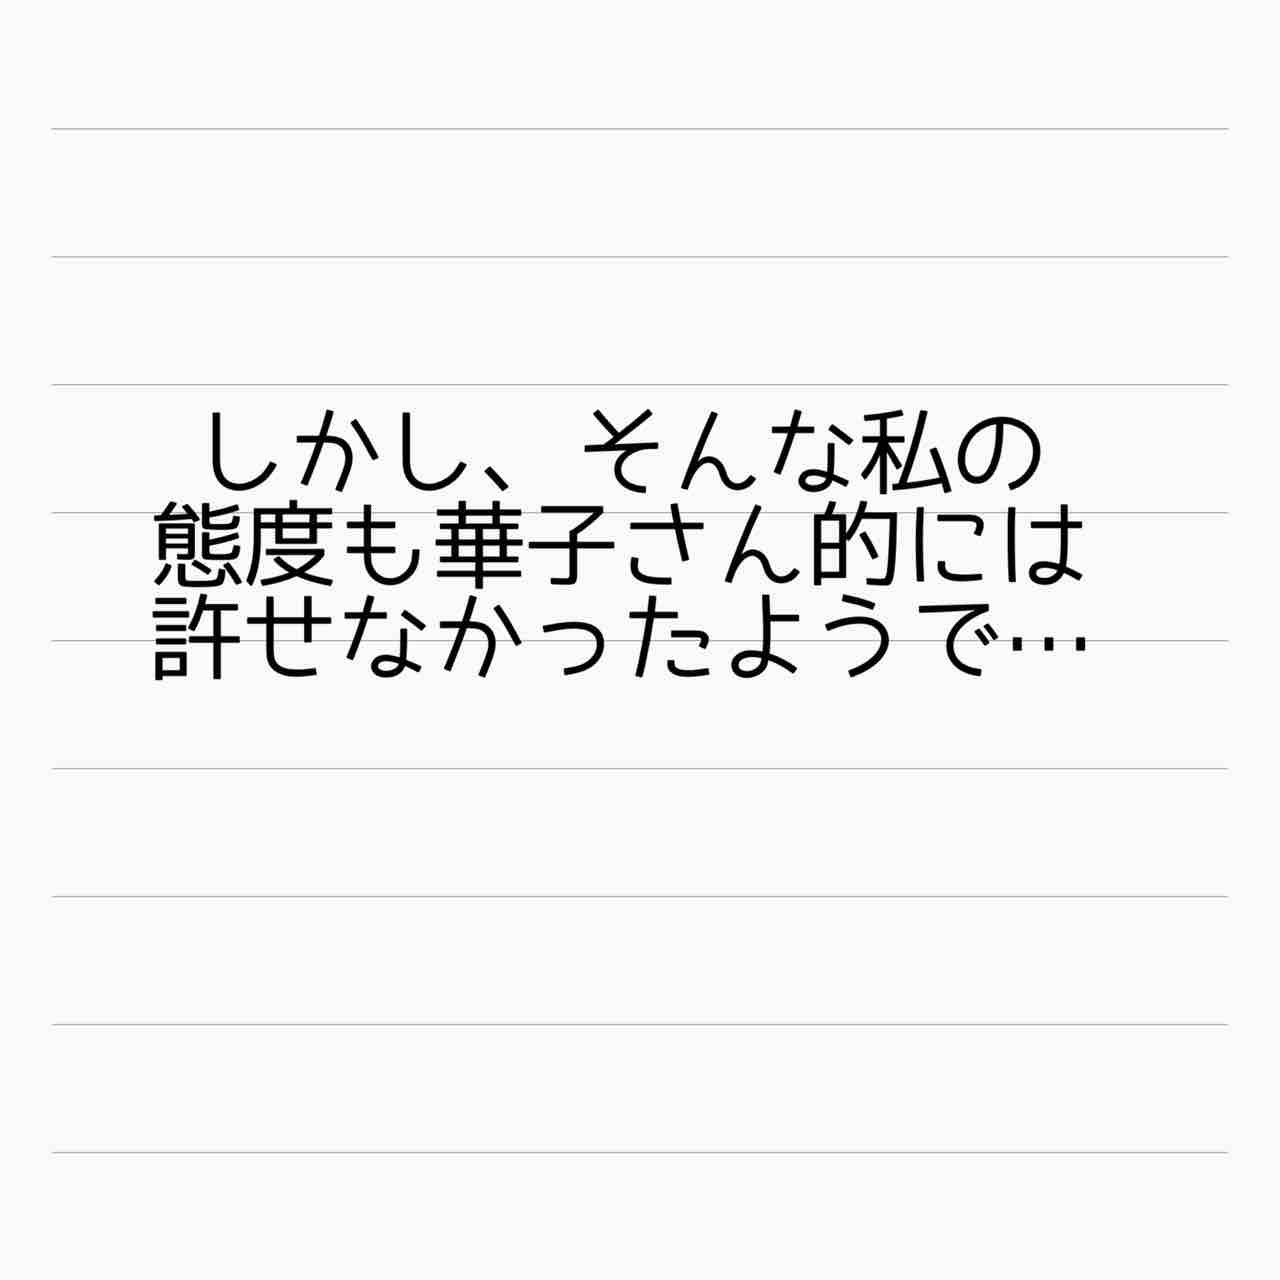 しかし、そんな私の
態度も華子さん的には
許せなかったようで…